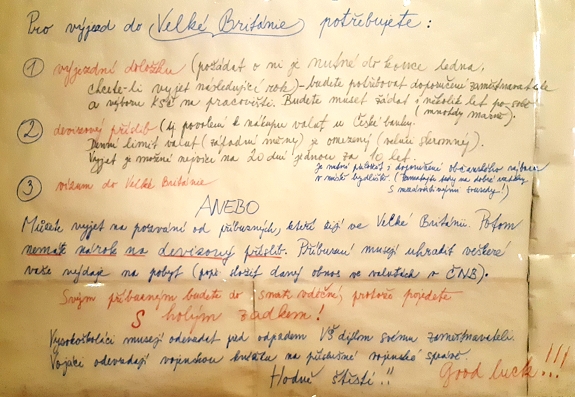 Pro výjezd do Velké Británie potřebujete:
① výjezdní doložku (požádat o ni je nutné do konce ledna,
chcete-li vyjet následující rok) - budete potřebovat doporučení zaměstnavatele
a výboru KSČ na pracovišti. Budete muset žádat i několik let po sobě
(mnohdy marně).
② devizový příslib (tj. povolení k nákupu valut u České banky.
Denní limit valut (západní měny) je omezený (velmi skromný).
Vyjet je možné nejvíce na 20 dní jednou za 10 let.
Je nutné přiložit i doporučení občanského výboru
v místě bydliště. (Pamatujte tedy na dobré vztahy
s nezávistivými sousedy!)
③ vízum do Velké Británie
ANEBO
Můžete vyjet na pozvání od příbuzných, kteří žijí ve Velké Británii. Potom
nemáte nárok na devizový příslib. Příbuzní musejí uhradit veškeré
vaše výdaje na pobyt (popř. složit daný obnos ve valutách v ČNB).
Svým příbuzným budete do smrti vděční, protože pojedete
S holým zadkem!
Vysokoškoláci musejí odevzdat před odjezdem VŠ diplom svému zaměstnavateli.
Vojáci odevzdají vojenskou knížku na příslušné vojenské správě.
Hodně štěstí!!
Good luck!!!